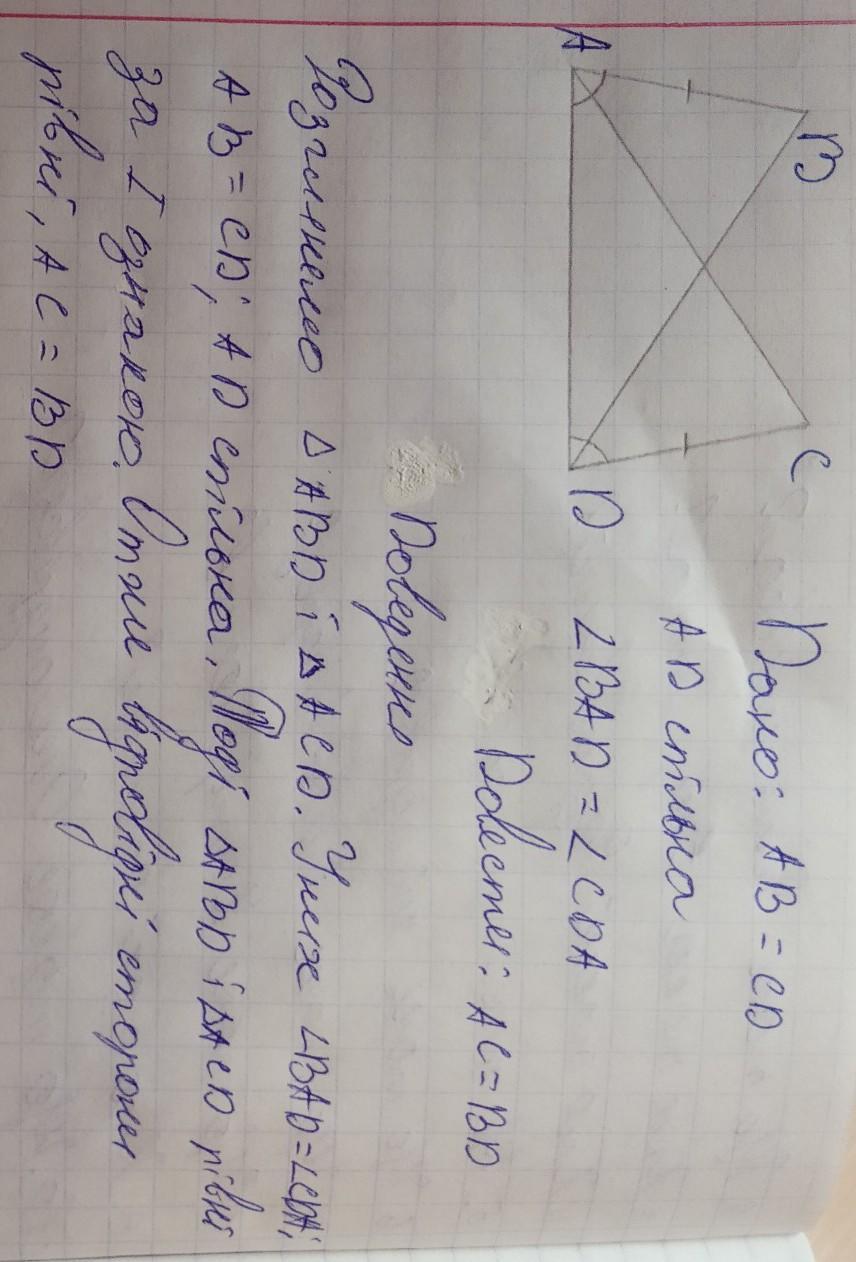 B
C
A
D
Дано: AB = CD
AD спільна
∠BAD = ∠CDA
Довести: AC = BD
Доведення
Розглянемо △ABD і △ACD. У них ∠BAD = ∠CDA;
AB = CD; AD спільна. Тоді △ABD і △ACD рівні
за I ознакою. Отже відповідні сторони
рівні, AC = BD